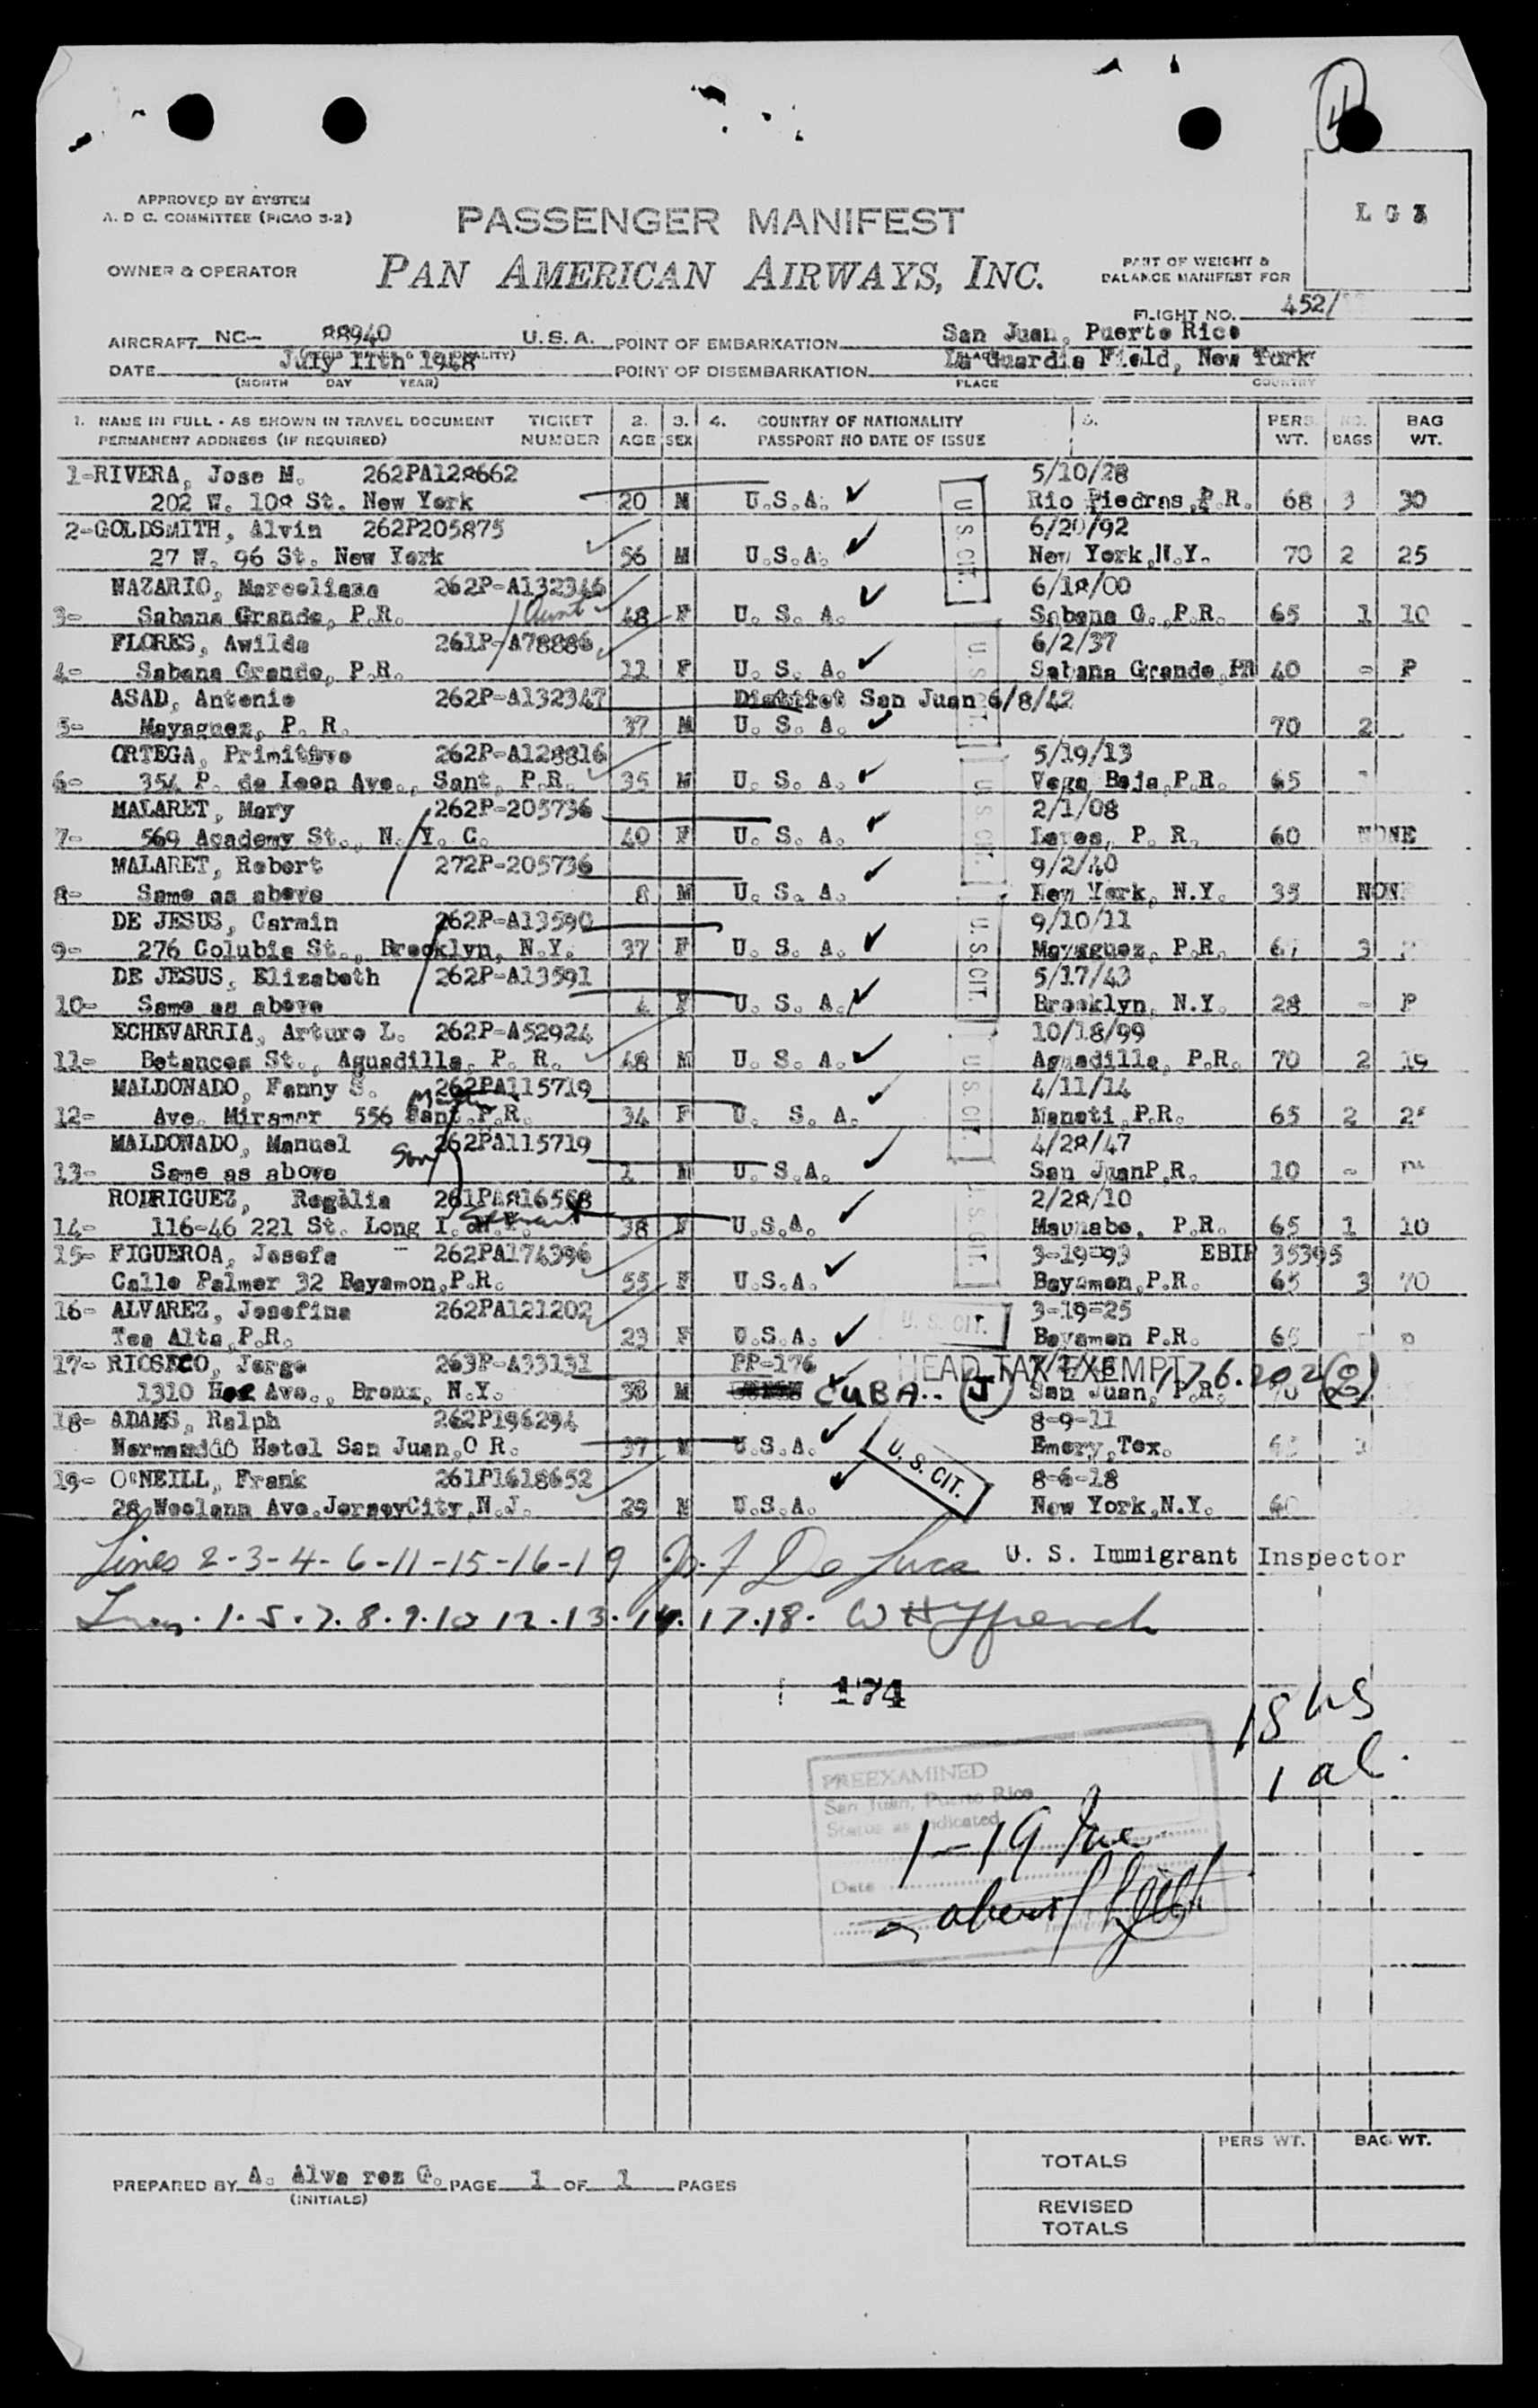 APPROVED BY SYSTEM
A. D C. COMMITTEE (PICAO 3-2)
PASSENGER MANIFEST
L G
OWNER & OPERATOR
PAN AMERICAN AIRWAYS, INC.
PART OF WEIGHT &
BALANCE MANIFEST FOR
FLIGHT NO. 452/
AIRCRAFT NC- 88940 U.S.A. POINT OF EMBARKATION San Juan, Puerto Rico
DATE July 11th 1948 POINT OF DISEMBARKATION La Guardia Field, New York
(MONTH DAY YEAR) PLACE COUNTRY
1. NAME IN FULL - AS SHOWN IN TRAVEL DOCUMENT TICKET 2. 3. 4. COUNTRY OF NATIONALITY 5. PERS. NO. BAG
PERMANENT ADDRESS (IF REQUIRED) NUMBER AGE SEX PASSPORT NO DATE OF ISSUE WT. BAGS WT.
1-RIVERA, Jose M. 262PA128662 5/10/28
202 W. 108 St. New York 20 M U.S.A. Rio Piedras, P.R. 68 3 30
2-GOLDSMITH, Alvin 262P205875 6/20/92
27 W. 96 St. New York 56 M U.S.A. New York, N.Y. 70 2 25
NAZARIO, Marceliana 262P-A132346 6/18/00
3- Sabana Grande, P.R. Aunt 48 F U. S. A. Sabana G., P.R. 65 1 10
FLORES, Awilda 261P-A78886 6/2/37
4- Sabana Grande, P.R. 11 F U. S. A. Sabana Grande, PR 40 - P
ASAD, Antonio 262P-A132347 District San Juan 6/8/42
5- Mayaguez, P. R. 37 M U. S. A. 70 2
ORTEGA, Primitivo 262P-A128816 5/19/13
6- 354 P. de Leon Ave., Sant, P.R. 35 M U. S. A. Vega Baja, P.R. 65
MALARET, Mary 262P-205736 2/1/08
7- 569 Academy St., N. Y. C. 40 F U. S. A. Lares, P. R. 60 NONE
MALARET, Robert 272P-205736 9/2/40
8- Same as above 8 M U. S. A. New York, N.Y. 35 NONE
DE JESUS, Carmin 262P-A13590 9/10/11
9- 276 Colubia St., Brooklyn, N.Y. 37 F U. S. A. Mayaguez, P.R. 3
DE JESUS, Elizabeth 262P-A13591 5/17/43
10- Same as above 4 F U. S. A. Brooklyn, N.Y. 28 - P
ECHEVARRIA, Arturo L. 262P-A52924 10/18/99
11- Betances St., Aguadilla, P. R. 48 M U. S. A. Aguadilla, P.R. 70 2 19
MALDONADO, Fanny S. 262PA115719 4/11/14
12- Ave. Miramar 556 Sant. P.R. 34 F U. S. A. Manati, P.R. 65 2
MALDONADO, Manuel 262PA115719 4/28/47
13- Same as above Son 1 M U. S.A. San Juan P.R. 10 -
RODRIGUEZ, Regelia 261PA816568 2/28/10
14- 116-46 221 St. Long I. 38 F U.S.A. Maunabo, P.R. 65 1 10
15- FIGUEROA, Josefa 262PA174396 3-19-93 EBIP 35395
Calle Palmer 32 Bayamon, P.R. 55 F U.S.A. Bayamon, P.R. 65 3 70
16- ALVAREZ, Josefina 262PA121202 3-19-25
Toa Alta, P.R. 23 F U.S.A. U. S. CIT. Bayamon P.R. 65
17- RIOSECO, Jorge 263P-A33131 PP-176 HEAD TAX EXEMPT 176.202(g)
1310 Hoe Ave., Bronx, N.Y. 38 M CUBA.. J San Juan, P.R. 70
18- ADAMS, Ralph 262P196294 8-9-11
Normandie Hotel San Juan, O R. 37 M U.S.A. U. S. CIT. Emory, Tex. 65 3
19- O'NEILL, Frank 261P1618652 8-6-18
28 Woolann Ave. Jersey City, N.J. 29 M U.S.A. New York, N.Y. 60
U. S. CIT.
U. S. CIT.
U. S. CIT.
U. S. CIT.
U. S. CIT.
U. S. CIT.
Lines 2-3-4-6-11-15-16-19 Jos. F De Luca U. S. Immigrant Inspector
Lines. 1.5.7.8.9.10 12.13.14.17.18. W H French
174
18 us
1 al.
PREEXAMINED
San Juan, Puerto Rico
Status as indicated
Date
1-19 Inc
PERS WT. BAG WT.
TOTALS
PREPARED BY A. Alvarez G. PAGE 1 OF 1 PAGES
(INITIALS)
REVISED
TOTALS